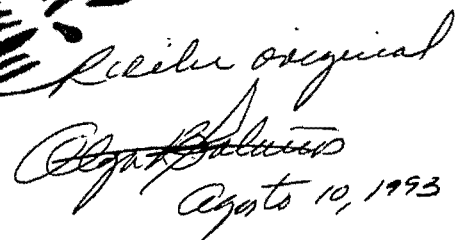 Recibi original
Olga
Agosto 10, 1993